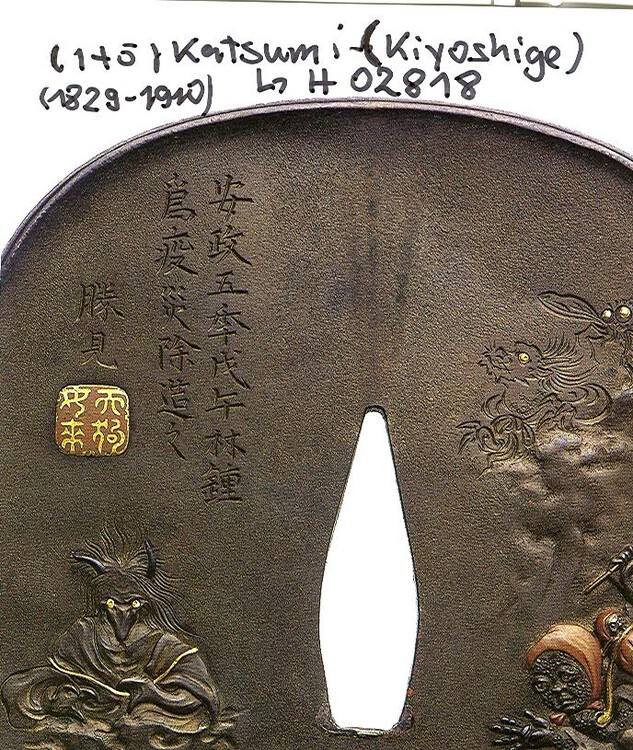 (1+5) Katsumi (Kiyoshige)
(1829-1910) ↳ H 02818
安政五季戊午林鍾
爲疫災除造之
勝見
天狗
如来